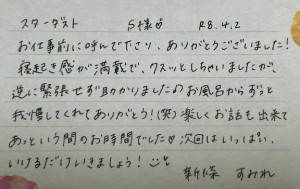 スターダスト S様♡ R8.4.2
お仕事前に呼んで下さり、ありがとうございました!
寝起き感が満載で、クスッとしちゃいましたが、
逆に緊張せず助かりました♡お風呂からずっと
我慢してくれてありがとう!(笑)楽しくお話も出来て
あっという間のお時間でした♡次回はいっぱい
いけるだけいきましょう!
新條 すみれ